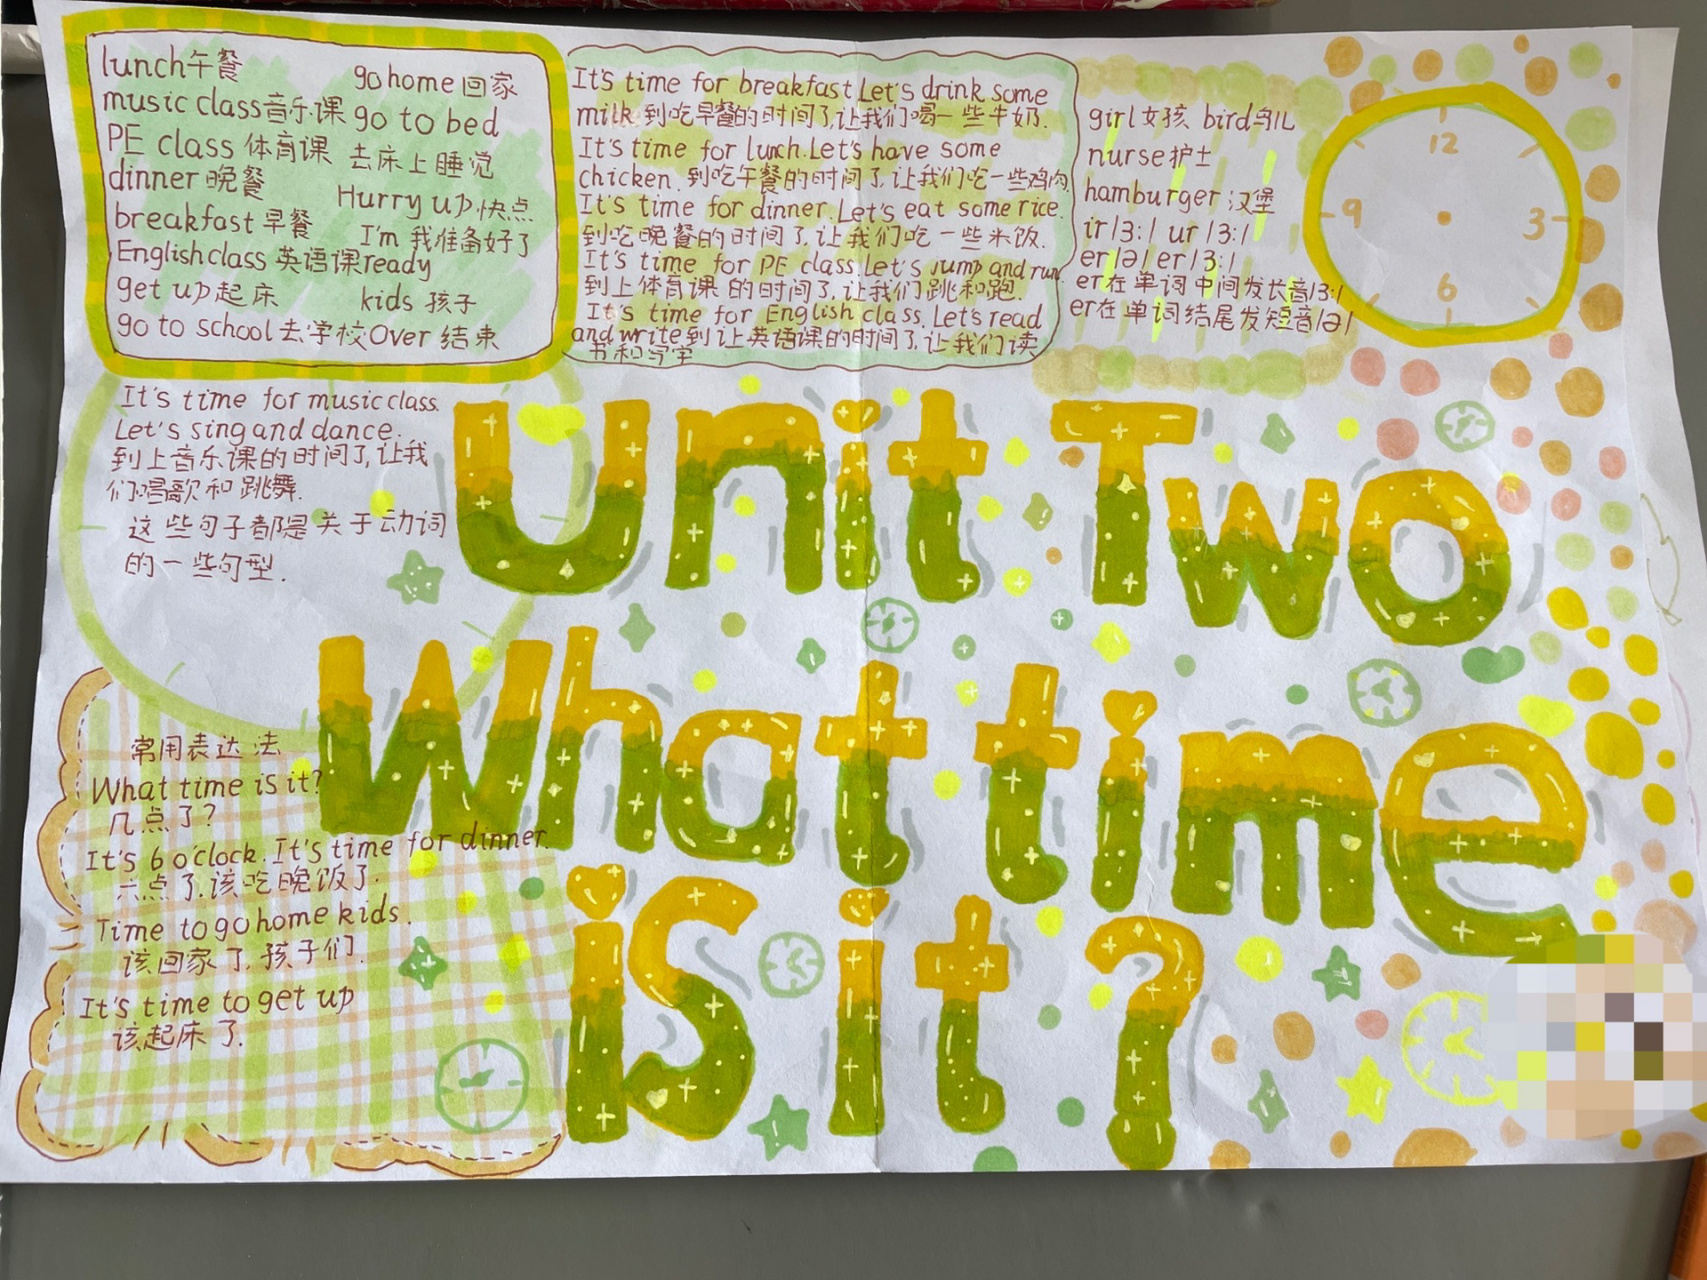 lunch午餐
music class音乐课
PE class 体育课
dinner 晚餐
breakfast 早餐
English class 英语课
get up起床
go to school去学校
go home 回家
go to bed
去床上睡觉
Hurry up 快点
I'm 我准备好了
ready
kids 孩子
Over 结束
It's time for breakfast Let's drink some
milk 到吃早餐的时间了,让我们喝一些牛奶.
It's time for lunch.Let's have some
chicken. 到吃午餐的时间了,让我们吃一些鸡肉.
It's time for dinner. Let's eat some rice.
到吃晚餐的时间了,让我们吃一些米饭.
It's time for PE class.Let's jump and run
到上体育课的时间了,让我们跳和跑.
It's time for English class. Let's read
and write到让英语课的时间了,让我们读
书和写字
girl 女孩 bird鸟儿
nurse护士
hamburger 汉堡
ir/3:/ ur/3:/
er/ə/ er/3:/
er在单词中间发长音/3:/
er在单词结尾发短音/ə/
12
9
3
6
It's time for music class.
Let's sing and dance.
到上音乐课的时间了,让我
们唱歌和跳舞.
这些句子都是关于动词
的一些句型.
Unit Two
What time
is it?
常用表达法
What time is it?
几点了?
It's 6 o'clock. It's time for dinner.
六点了.该吃晚饭了.
Time to go home kids.
该回家了,孩子们.
It's time to get up
该起床了.